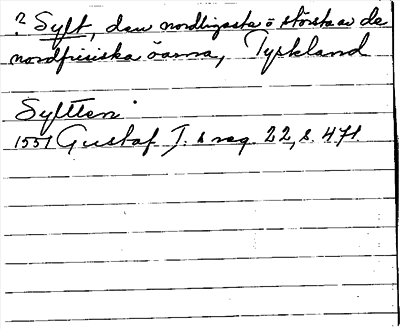 ? Sylt, den nordligaste o största av de
nordfrisiska öarna, Tyskland
Syltten
1551 Gustaf I. s reg. 22, s. 471.